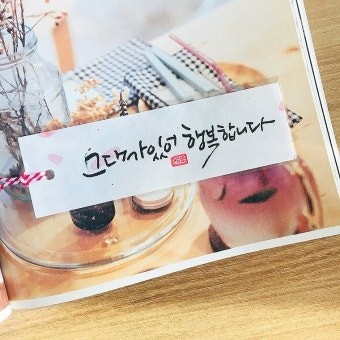 그대가있어 행복합니다